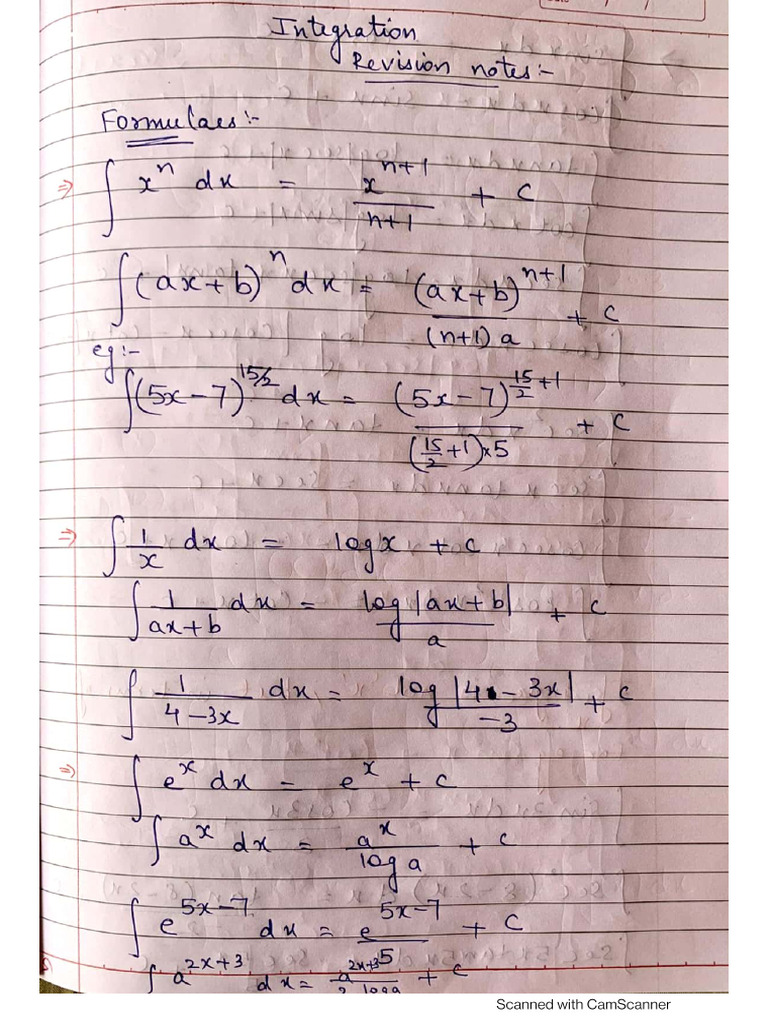 Integration
Revision notes:-
Formulaes:-
⇒ ∫ xⁿ dx = xⁿ⁺¹/(n+1) + c
∫(ax+b)ⁿ dx = (ax+b)ⁿ⁺¹/((n+1)a) + c
eg:-
∫(5x-7)^(15/2) dx = (5x-7)^(15/2+1)/((15/2+1)×5) + c
⇒ ∫ 1/x dx = logx + c
∫ 1/(ax+b) dx = log|ax+b|/a + c
∫ 1/(4-3x) dx = log|4-3x|/-3 + c
⇒ ∫ eˣ dx = eˣ + c
∫ aˣ dx = aˣ/log a + c
∫ e^(5x-7) dx = e^(5x-7)/5 + c
∫ a^(2x+3) dx = a^(2x+3)/(2 loga) + c
Scanned with CamScanner